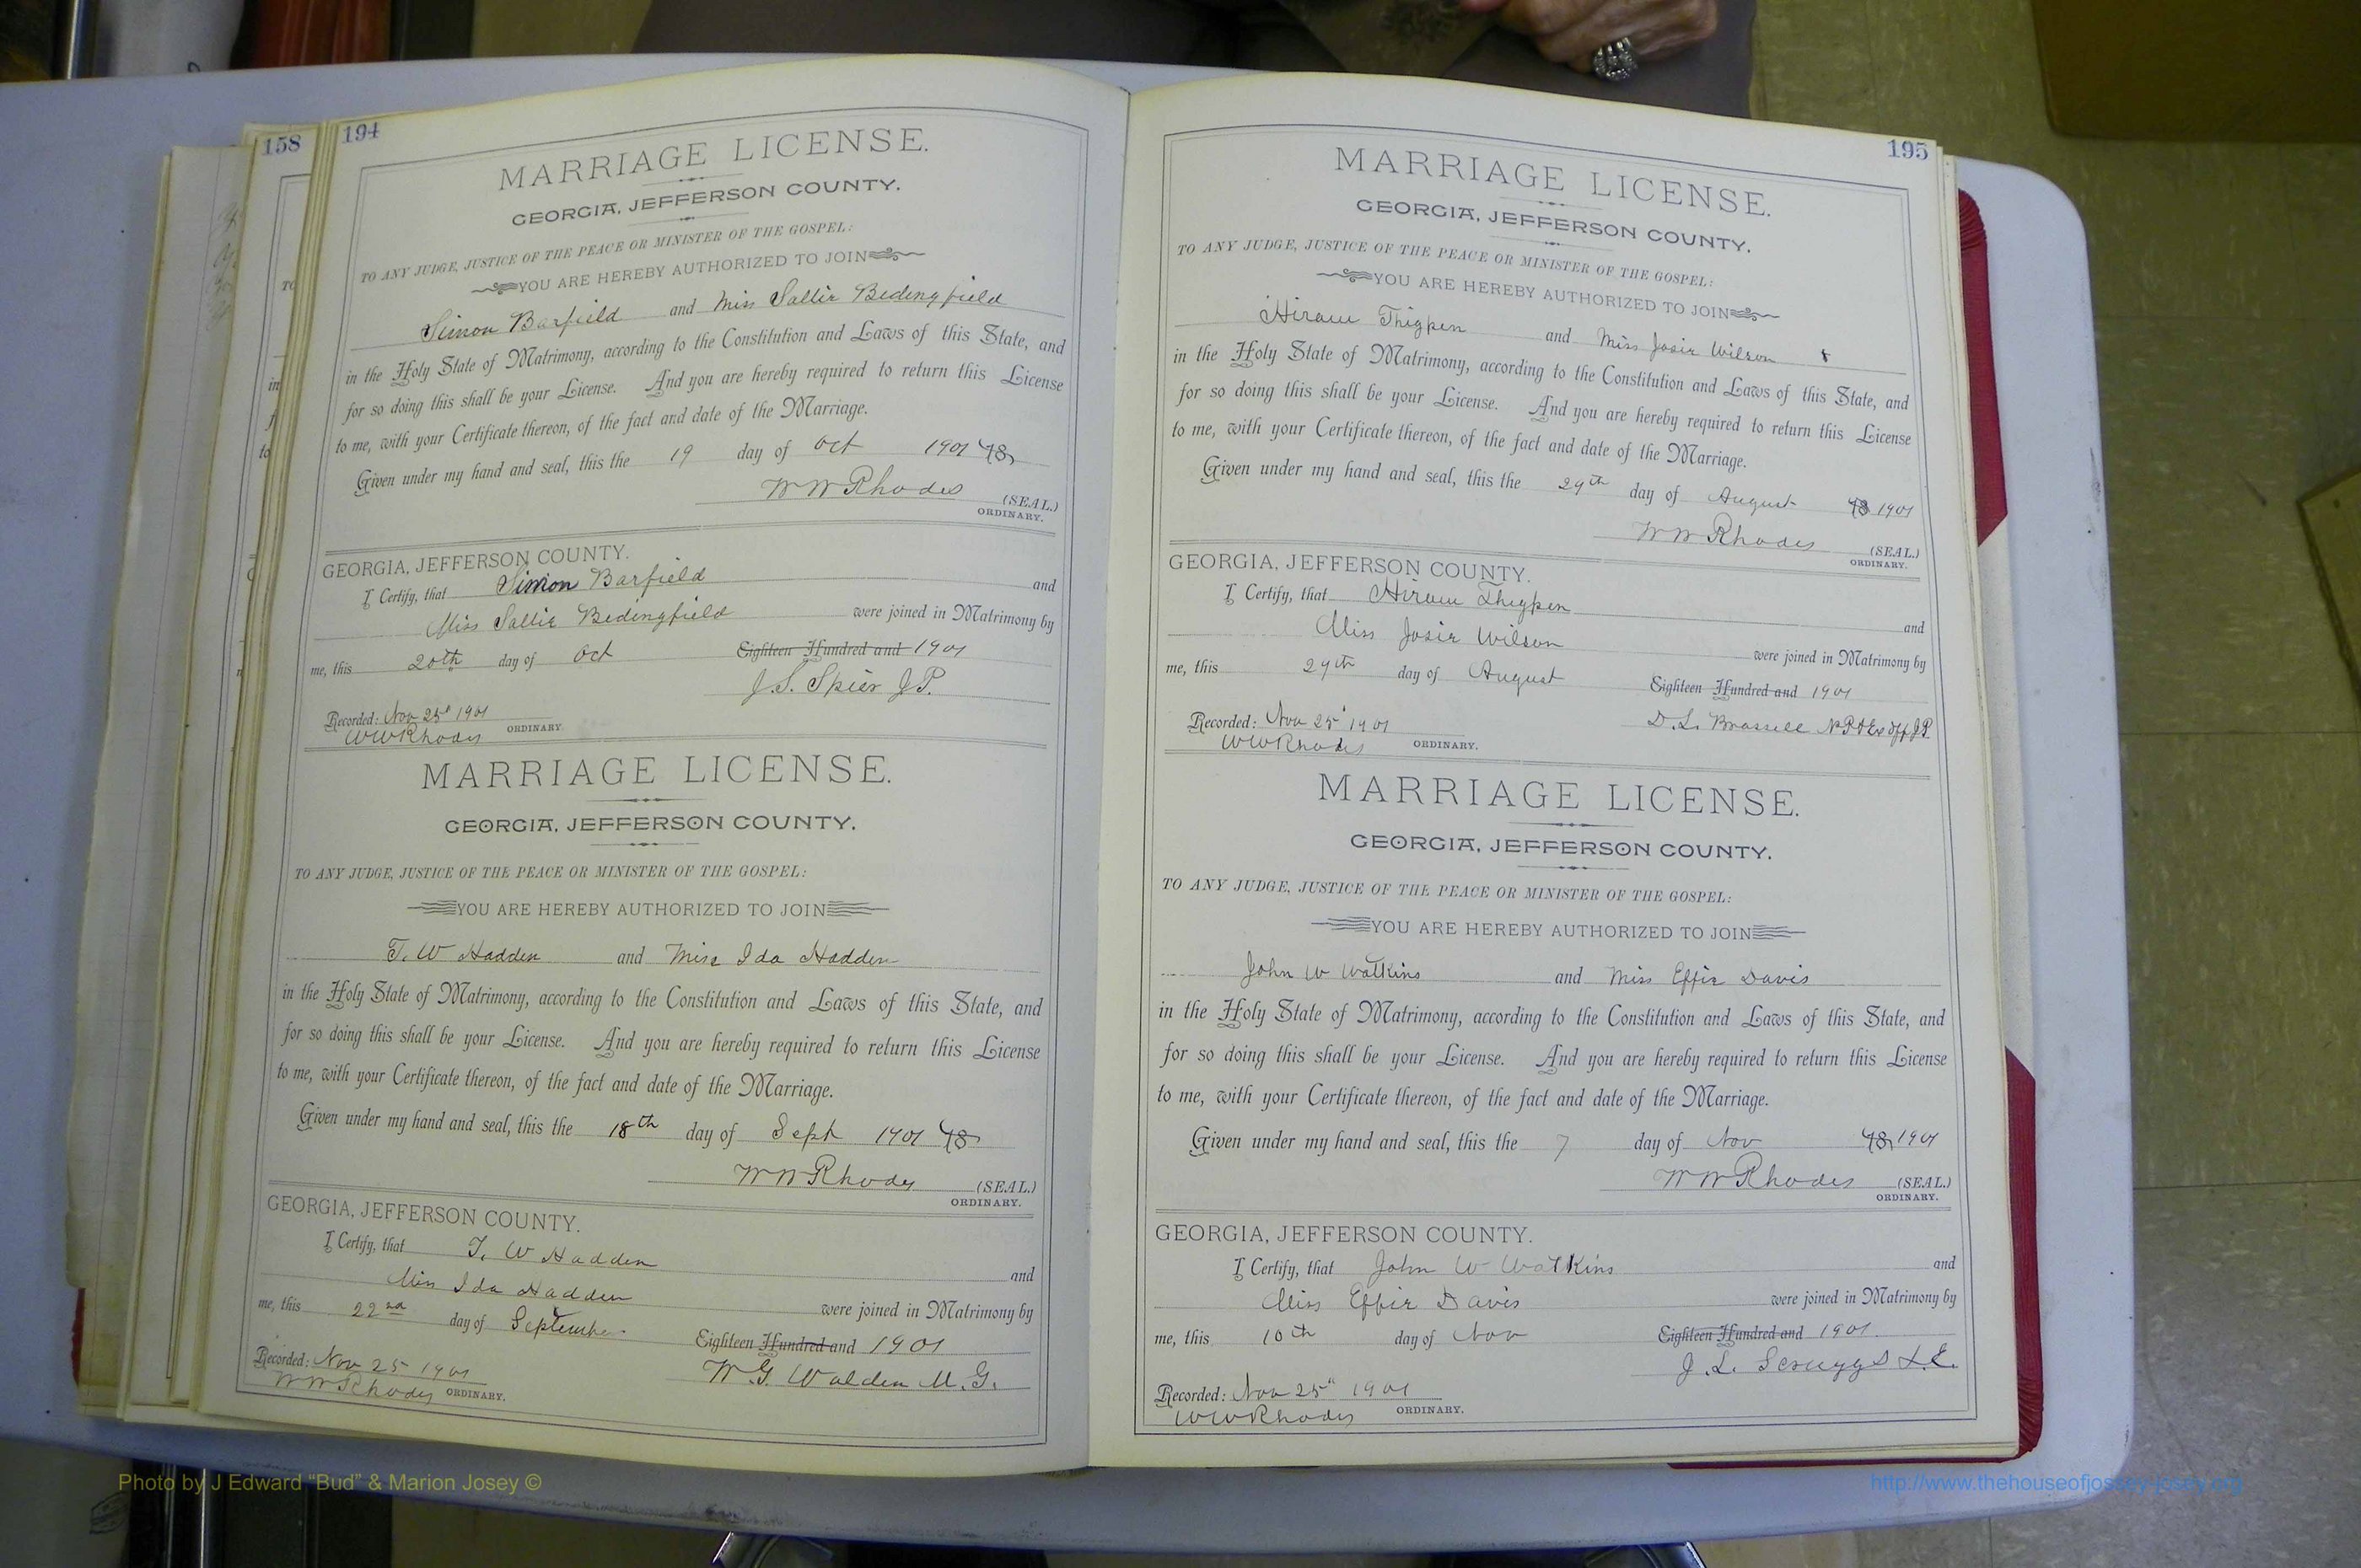 158
194
MARRIAGE LICENSE.
GEORGIA, JEFFERSON COUNTY.
TO ANY JUDGE, JUSTICE OF THE PEACE OR MINISTER OF THE GOSPEL:
YOU ARE HEREBY AUTHORIZED TO JOIN
Simon Barfield and Miss Sallie Bedingfield
in the Holy State of Matrimony, according to the Constitution and Laws of this State, and
for so doing this shall be your License. And you are hereby required to return this License
to me, with your Certificate thereon, of the fact and date of the Marriage.
Given under my hand and seal, this the 19 day of Oct 1901 18
W W Rhodes (SEAL.)
ORDINARY.
GEORGIA, JEFFERSON COUNTY.
I Certify, that Simon Barfield and
Miss Sallie Bedingfield were joined in Matrimony by
me, this 20th day of Oct Eighteen Hundred and 1901
J. S. Spier J.P.
Recorded: Nov 25" 1901
WW Rhodes ORDINARY.
MARRIAGE LICENSE.
GEORGIA, JEFFERSON COUNTY.
TO ANY JUDGE, JUSTICE OF THE PEACE OR MINISTER OF THE GOSPEL:
YOU ARE HEREBY AUTHORIZED TO JOIN
T. W Hadden and Miss Ida Hadden
in the Holy State of Matrimony, according to the Constitution and Laws of this State, and
for so doing this shall be your License. And you are hereby required to return this License
to me, with your Certificate thereon, of the fact and date of the Marriage.
Given under my hand and seal, this the 18th day of Sept 1901 18
W W Rhodes (SEAL.)
ORDINARY.
GEORGIA, JEFFERSON COUNTY.
I Certify, that T. W Hadden
Miss Ida Hadden and
me, this 22nd day of September were joined in Matrimony by
Eighteen Hundred and 1901
Recorded: Nov 25 1901 W. G. Walden M. G.
W W Rhodes ORDINARY.
195
MARRIAGE LICENSE.
GEORGIA, JEFFERSON COUNTY.
TO ANY JUDGE, JUSTICE OF THE PEACE OR MINISTER OF THE GOSPEL:
YOU ARE HEREBY AUTHORIZED TO JOIN
Hiram Thigpen and Miss Josie Wilson
in the Holy State of Matrimony, according to the Constitution and Laws of this State, and
for so doing this shall be your License. And you are hereby required to return this License
to me, with your Certificate thereon, of the fact and date of the Marriage.
Given under my hand and seal, this the 29th day of August 18 1901
W W Rhodes (SEAL.)
ORDINARY.
GEORGIA, JEFFERSON COUNTY.
I Certify, that Hiram Thigpen and
Miss Josie Wilson were joined in Matrimony by
me, this 29th day of August Eighteen Hundred and 1901
D. L. Brassell N.P. & Ex off J.P.
Recorded: Nov 25" 1901
WW Rhodes ORDINARY.
MARRIAGE LICENSE.
GEORGIA, JEFFERSON COUNTY.
TO ANY JUDGE, JUSTICE OF THE PEACE OR MINISTER OF THE GOSPEL:
YOU ARE HEREBY AUTHORIZED TO JOIN
John W Watkins and Miss Effie Davis
in the Holy State of Matrimony, according to the Constitution and Laws of this State, and
for so doing this shall be your License. And you are hereby required to return this License
to me, with your Certificate thereon, of the fact and date of the Marriage.
Given under my hand and seal, this the 7 day of Nov 18 1901
W W Rhodes (SEAL.)
ORDINARY.
GEORGIA, JEFFERSON COUNTY.
I Certify, that John W Watkins and
Miss Effie Davis were joined in Matrimony by
me, this 10th day of Nov Eighteen Hundred and 1901
J. L. Scruggs L.E.
Recorded: Nov 25" 1901
WW Rhodes ORDINARY.
Photo by J Edward “Bud” & Marion Josey ©
http://www.thehouseofjossey-josey.org